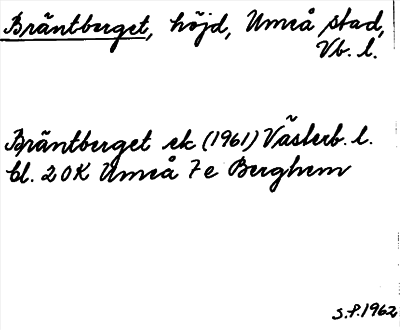 Bräntberget, höjd, Umeå stad,
Vb. l.
Bräntberget ek (1961) Västerb. l.
bl. 20K Umeå 7e Berghem
S.P. 1962